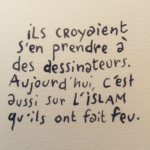 iLS CROYAiENT
S'EN PRENDRE à
DES DESSINATEURS.
AUJOURD'HUi, C'EST
AUSSi SUR L'iSLAM
QU'iLS ONT FAiT FEU.